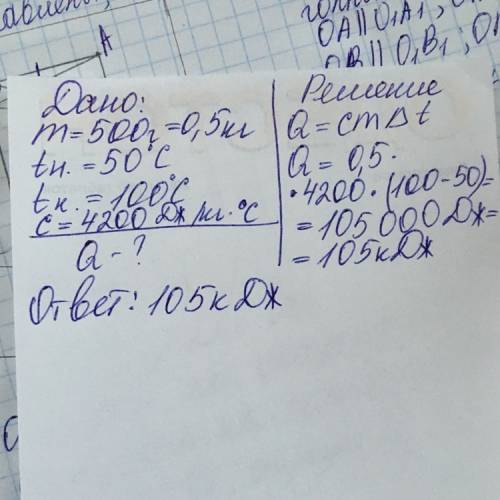 авлены,
A
OA || O₁A₁ ; O
OB || O₁B₁ ; O₁
Дано:
m = 500г = 0,5кг
tн. = 50°C
tк. = 100°C
c = 4200 Дж/кг·°C
Q - ?
Решение
Q = cmΔt
Q = 0,5 ·
· 4200 · (100 - 50) =
= 105 000 Дж =
= 105 кДж
Ответ: 105 кДж